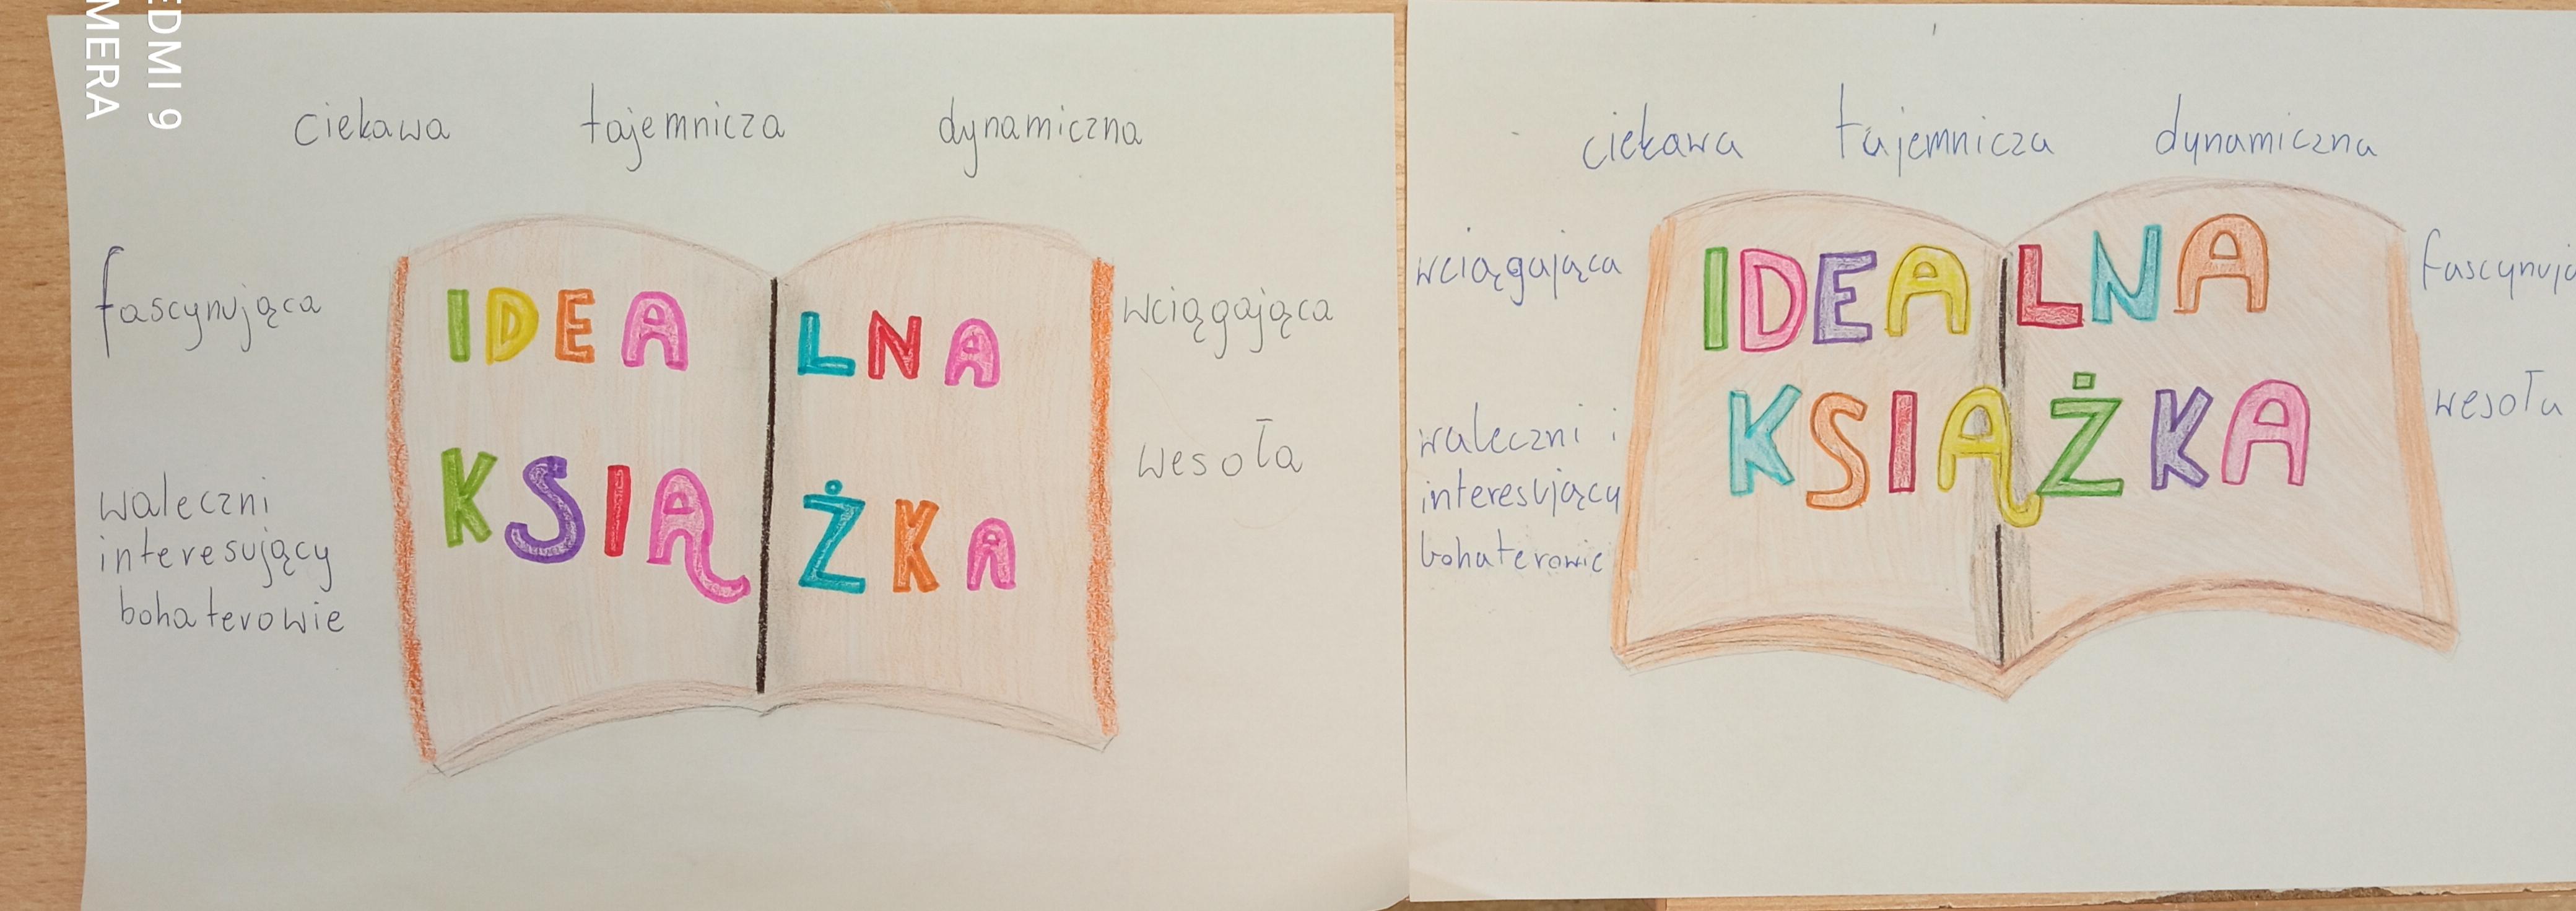 EDMI 9
MERA
ciekawa tajemnicza dynamiczna
fascynująca
IDEALNA
wciągająca
KSIĄŻKA
wesoła
waleczni
interesujący
bohaterowie
ciekawa tajemnicza dynamiczna
wciągająca
IDEALNA
fascynują
KSIĄŻKA
wesoła
waleczni i
interesujący
bohaterowie